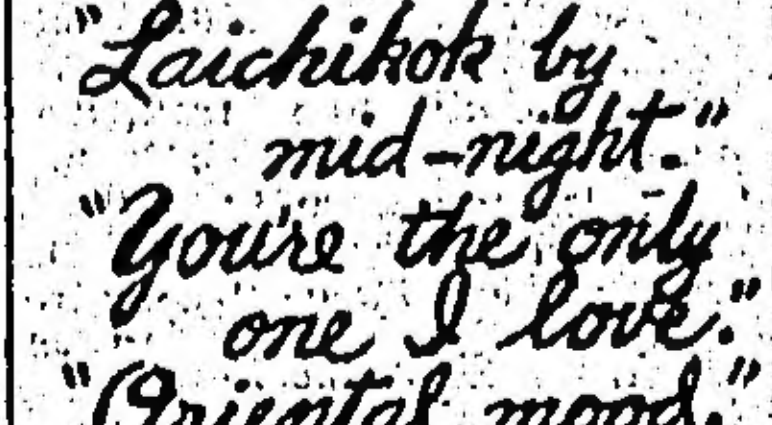 "Laichikok by
mid-night."
"You're the only
one I love."
"Oriental mood."